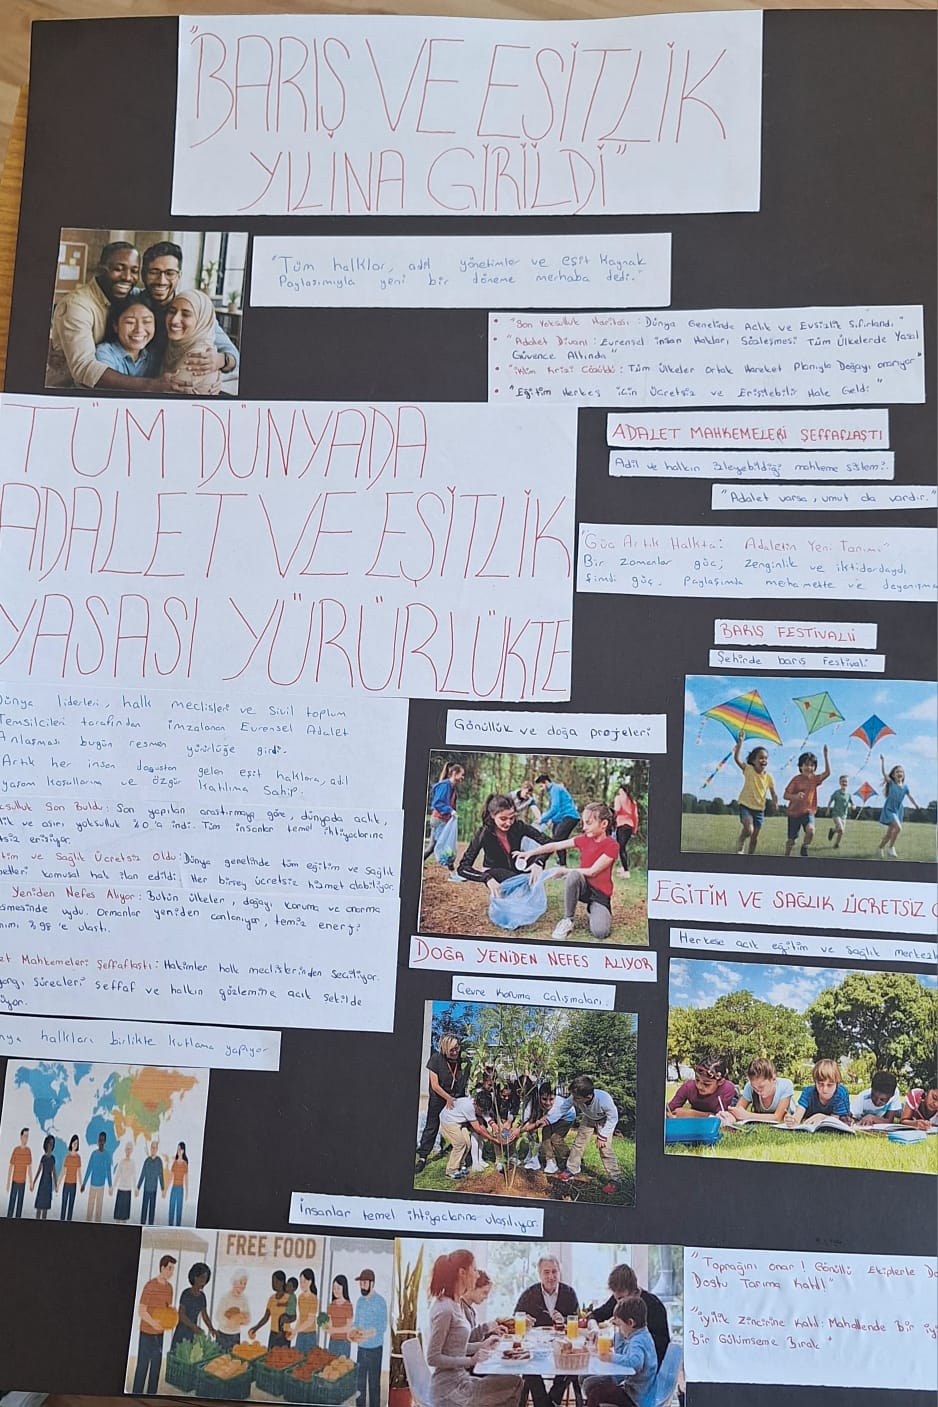 "BARIŞ VE EŞİTLİK
YILINA GİRİLDİ"
"Tüm halklar, adil yönetimler ve eşit kaynak
Paylaşımıyla yeni bir döneme merhaba dedi."
• "Son Yoksulluk Haritası: Dünya Genelinde Açlık ve Evsizlik Sıfırlandı."
• "Adalet Divanı: Evrensel insan Hakları Sözleşmesi Tüm Ülkelerde Yasal
Güvence Altında"
• "iklim Krizi Çözüldü: Tüm Ülkeler Ortak Hareket Planıyla Doğayı onarıyor"
• "Eğitim Herkes için Ücretsiz ve Erişilebilir Hale Geldi"
TÜM DÜNYADA
ADALET VE EŞİTLİK
YASASI YÜRÜRLÜKTE
ADALET MAHKEMELERİ ŞEFFAFLAŞTI
Adil ve halkın izleyebildiği mahkeme sistemi.
"Adalet varsa, umut da vardır."
"Güç Artık Halkta: Adaletin Yeni Tanımı"
Bir zamanlar güç; zenginlik ve iktidardaydı
şimdi güç, paylaşımla merhamette ve
BARIŞ FESTİVALİ
Şehirde barış festivali
Dünya liderleri, halk meclisleri ve Sivil toplum
Temsilcileri tarafından imzalanan Evrensel Adalet
Anlaşması bugün resmen yürürlüğe girdi.
Artık her insan doğuştan gelen eşit haklara, adil
yaşam koşullarına ve özgür katılıma sahip.
Son Buldu: Son yapılan araştırmaya göre, dünyada açlık,
ve aşırı yoksulluk %0'a indi. Tüm insanlar temel ihtiyaçlarına
erişiyor.
ve Sağlık Ücretsiz Oldu: Dünya genelinde tüm eğitim ve sağlık
kamusal hak ilan edildi. Her birey ücretsiz hizmet alabiliyor.
Yeniden Nefes Alıyor: Bütün ülkeler, doğayı koruma ve onarma
uydu. Ormanlar yeniden canlanıyor, temiz enerji
%98'e ulaştı.
Mahkemeleri Şeffaflaştı: Hakimler halk meclislerinden seçiliyor.
süreçleri şeffaf ve halkın gözlemine açık şekilde
halkları birlikte kutlama yapıyor
Gönüllük ve doğa projeleri
DOĞA YENİDEN NEFES ALIYOR
Çevre koruma çalışmaları.
EĞİTİM VE SAĞLIK ÜCRETSİZ
Herkese açık eğitim ve sağlık
İnsanlar temel ihtiyaçlarına ulaşılıyor.
FREE FOOD
"Toprağını onar! Gönüllü Ekiplerle
Dostu Tarıma Katıl!"
"iyilik Zincirine Katıl: Mahallende Bir
Bir Gülümseme Bırak"